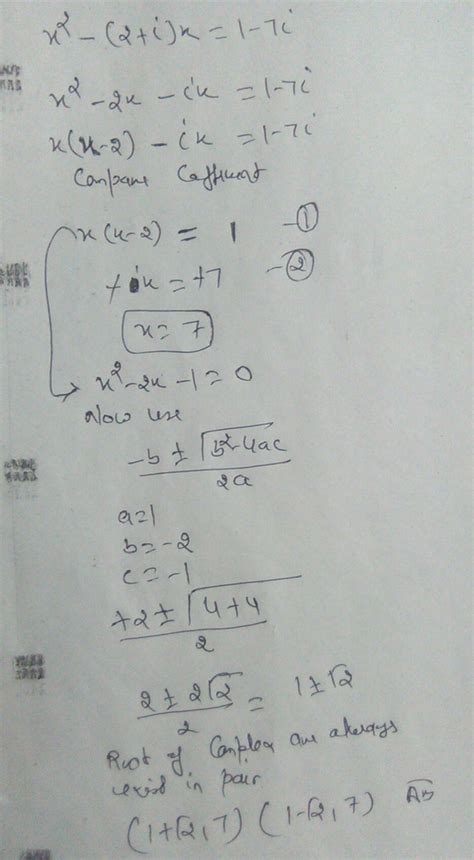 x² - (2+i)x = 1-7i
x² - 2x - ix = 1-7i
x(x-2) - ix = 1-7i
Compare Cofficient
x(x-2) = 1 -①
+ix = +7 -②
x = 7
x² - 2x - 1 = 0
Now use
-b ± √b²-4ac
2a
a=1
b=-2
c=-1
+2 ± √4+4
2
2 ± 2√2 = 1±√2
2
Root of Complex are always
exist in pair
(1+√2, 7) (1-√2, 7) Ans